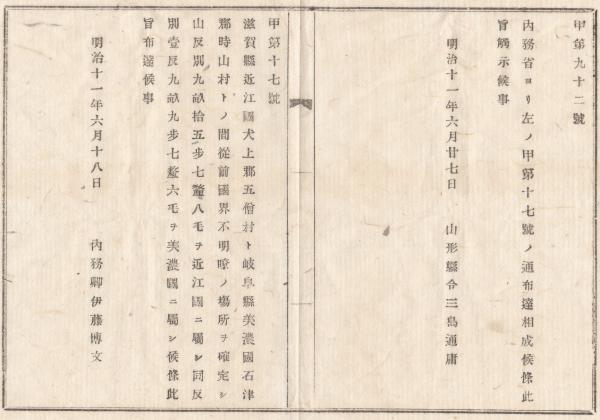 甲第九十二號
內務省ヨリ左ノ甲第十七號ノ通布達相成候條此
旨觸示候事
明治十一年六月廿七日　山形縣令三島通庸
甲第十七號
滋賀縣近江國犬上郡五僧村ト岐阜縣美濃國石津
郡時山村トノ間從前國界不明瞭ノ塲所ヲ確定シ
山反別九畝拾五步七釐八毛ヲ近江國ニ屬シ同反
別壹反九畝九步七釐六毛ヲ美濃國ニ屬シ候條此
旨布達候事
明治十一年六月十八日　內務卿伊藤博文